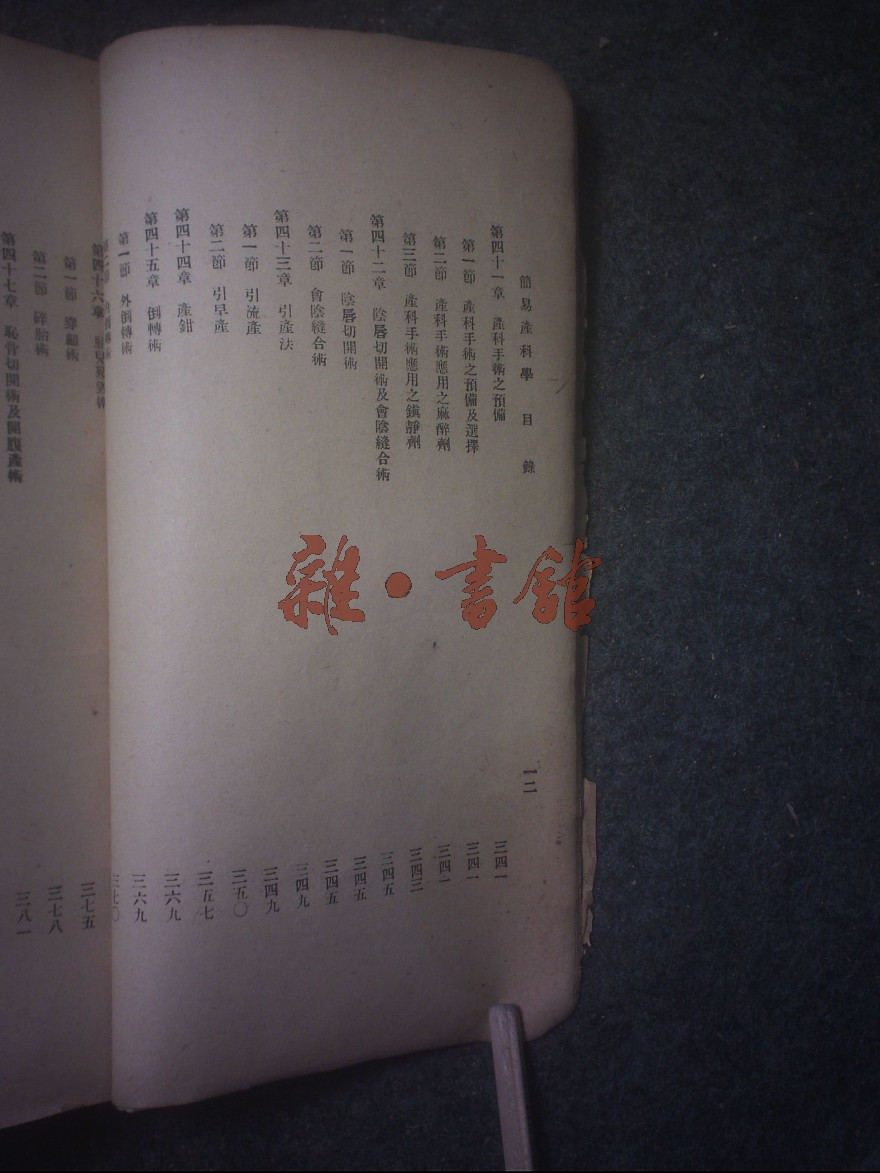 簡易產科學 目 錄 一二
第四十一章 產科手術之預備 三四一
第一節 產科手術之預備及選擇 三四一
第二節 產科手術應用之麻醉劑 三四一
第三節 產科手術應用之鎮靜劑 三四三
第四十二章 陰唇切開術及會陰縫合術 三四五
第一節 陰唇切開術 三四五
第二節 會陰縫合術 三四五
第四十三章 引產法 三四九
第一節 引流產 三四九
第二節 引早產 三五〇
第四十四章 產鉗 三五七
第四十五章 倒轉術 三六九
第一節 外倒轉術 三六九
三七〇
第四十六章
第一節 穿顱術 三七五
第二節 碎胎術 三七八
第四十七章 恥骨切開術及開腹產術 三八一
雜·書館